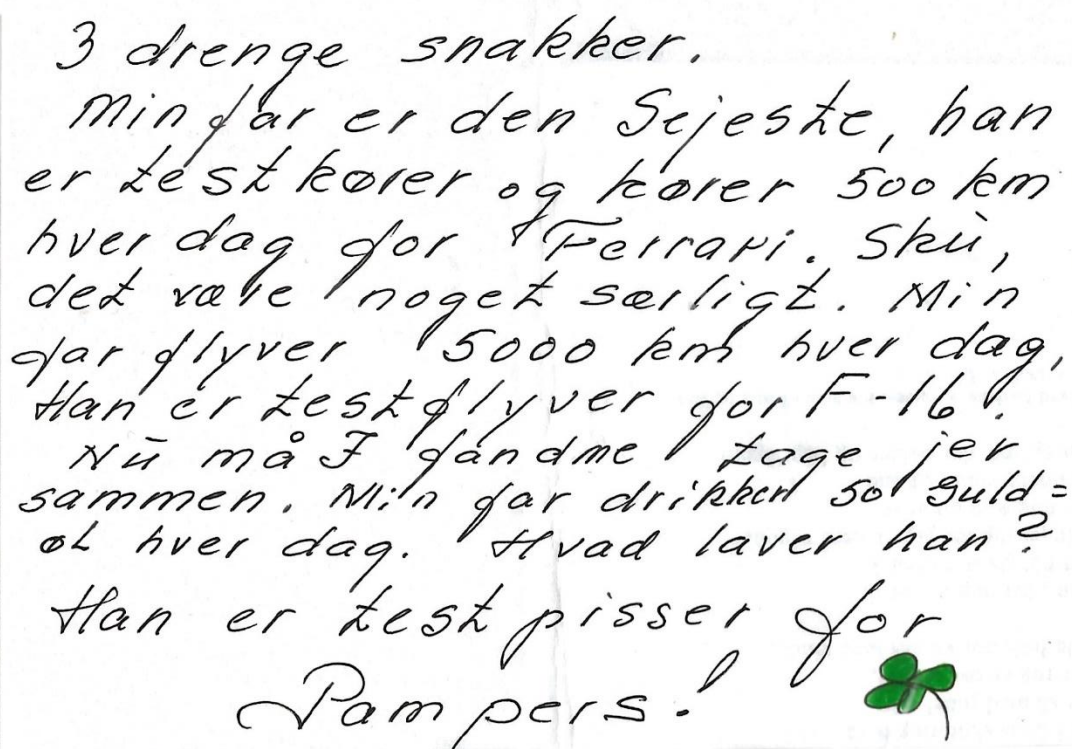 3 drenge snakker.
Min far er den Sejeste, han
er testkører og kører 500 km
hver dag for Ferrari. Skù,
det være noget særligt. Min
far flyver 5000 km hver dag,
Han er testflyver for F-16!
Nū må I fandme tage jer
sammen. Min far drikker 50 guld=
øl hver dag. Hvad laver han?
Han er testpisser for
Pampers!